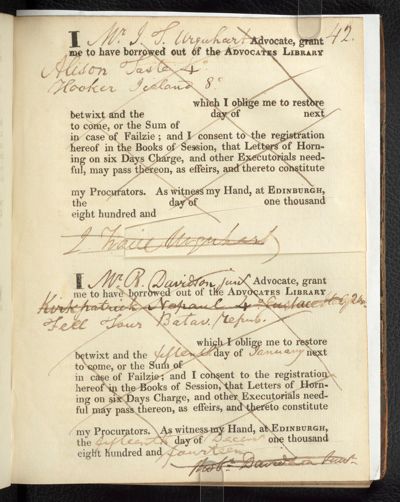 42.
I Mr J. T. Urquhart Advocate, grant
me to have borrowed out of the ADVOCATES LIBRARY
Alison Taste 4o
Hooker Iceland 8o
which I oblige me to restore
betwixt and the day of next
to come, or the Sum of
in case of Failzie; and I consent to the registration
hereof in the Books of Session, that Letters of Horn-
ing on six Days Charge, and other Executorials need-
ful, may pass thereon, as effeirs, and thereto constitute
my Procurators. As witness my Hand, at EDINBURGH,
the day of one thousand
eight hundred and
J Urquhart
I Mr R. Davidson junr Advocate, grant
me to have borrowed out of the ADVOCATES LIBRARY
Kirkpatrick Nepaul 4o
Fell Tour Batav. repub.
which I oblige me to restore
betwixt and the fifteenth day of January next
to come, or the Sum of
in case of Failzie; and I consent to the registration
hereof in the Books of Session, that Letters of Horn-
ing on six Days Charge, and other Executorials need-
ful may pass thereon, as effeirs, and thereto constitute
my Procurators. As witness my Hand, at EDINBURGH,
the fifteenth day of Decemr one thousand
eight hundred and fourteen
Robt Davidson junr